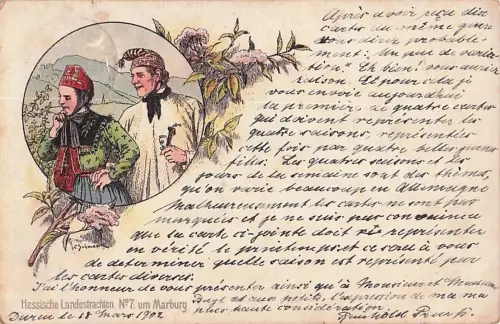 Après avoir reçu dix
cartes du même genre
vous direz probable-
ment: Un peu de varia-
tion" Eh bien! vous avez
raison. Et pour cela je
vous envoie aujourd'hui
la première de quatre cartes
qui doivent représenter les
quatre saisons, représentées
cette fois par quatre belles jeunes
filles. Les quatre saisons et les
jours de la semaine sont des thèmes,
qu'on varie beaucoup en Allemagne
Malheureusement les cartes ne sont pas
marquées et je ne suis pas convaincu
que la carte ci-jointe doit représenter
en vérité le printemps et ce sera à vous
de déterminer quelle saison est représentée par
les cartes diverses.
J'ai l'honneur de vous présenter ainsi qu'à Monsieur et Madame
et aux petits, l'expression de ma
plus haute considération.
Hessische Landestrachten No 7. um Marburg
Duren le 18 Mars 1902